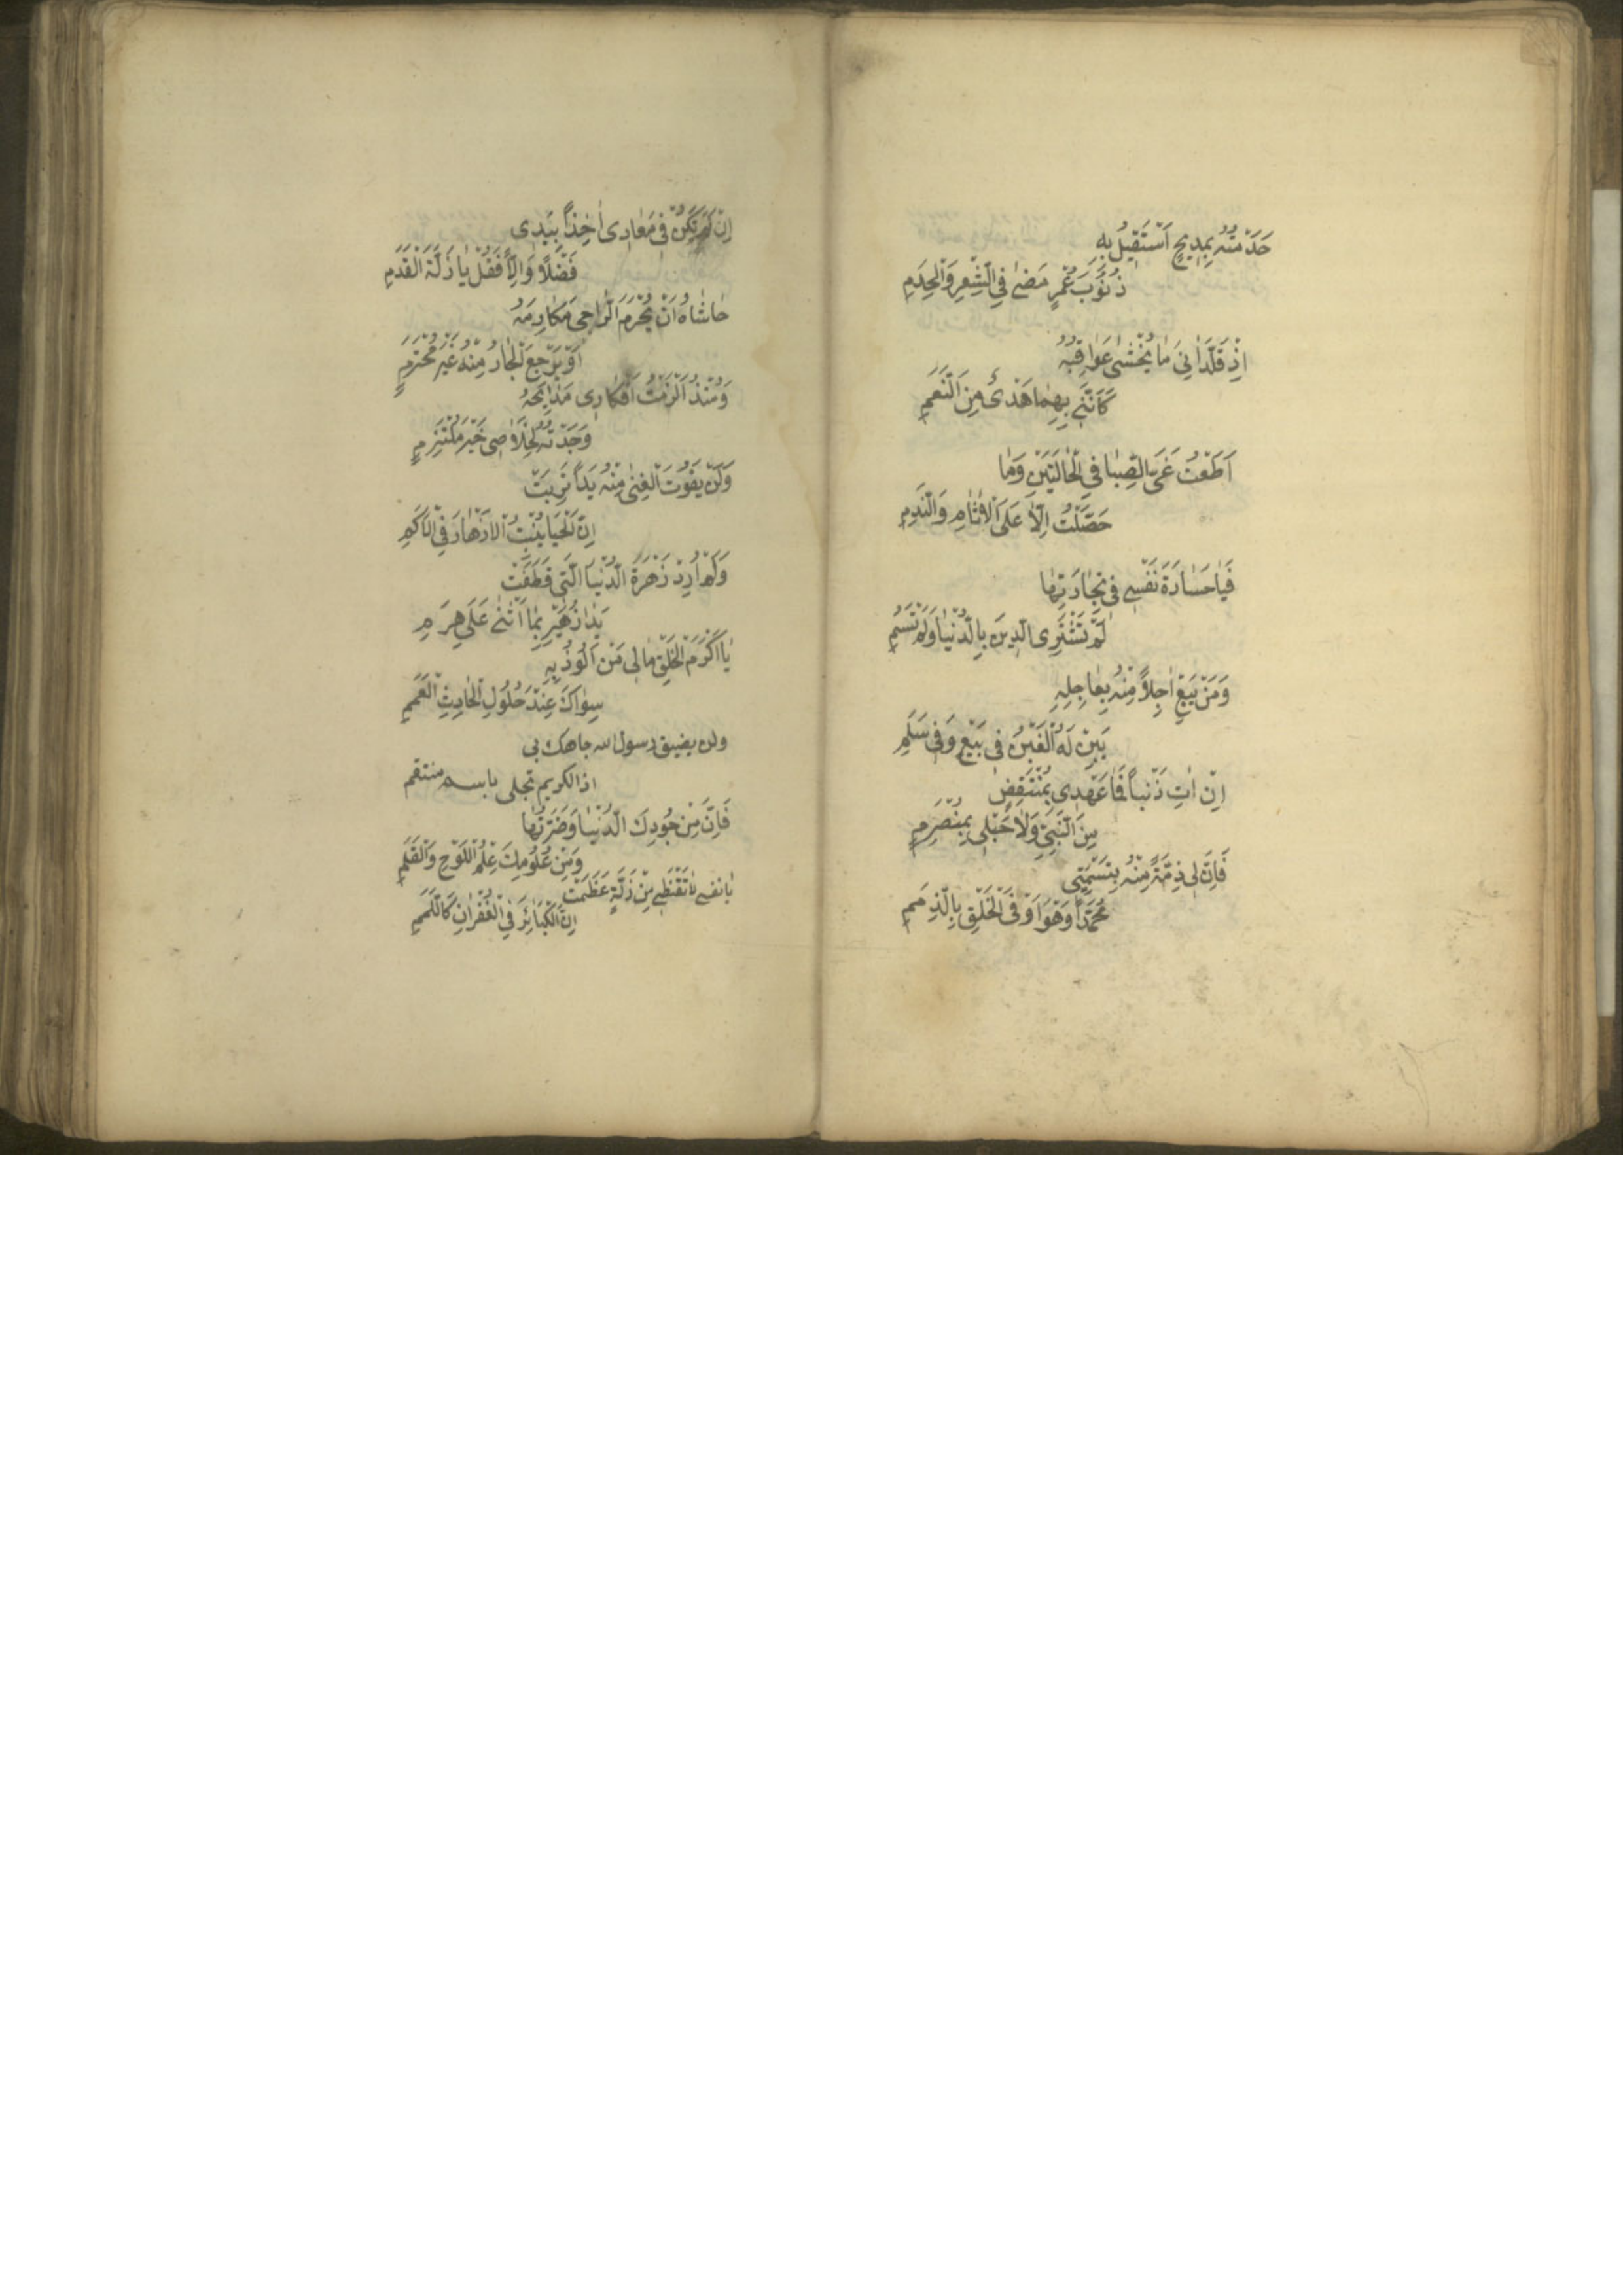 خَدَمْتُهُ بِمَدِيحٍ اَسْتَقِيلُ بِهِ
ذُنُوبَ عُمْرٍ مَضٰى فِي الشِّعْرِ وَالْخِدَمِ
اِذْ قَلَّدَانِيَ مَا يُخْشٰى عَوَاقِبُهُ
كَاَنَّنِى بِهِمَا هَدْىٌ مِنَ النَّعَمِ
اَطَعْتُ غَىَّ الصِّبَا فِي الْحَالَتَيْنِ وَمَا
حَصَّلْتُ اِلَّا عَلَى الْاٰثَامِ وَالنَّدَمِ
فَيَا خَسَارَةَ نَفْسٍ فِى تِجَارَتِهَا
لَمْ تَشْتَرِى الدِّينَ بِالدُّنْيَا وَلَمْ تَسُمِ
وَمَنْ يَبِعْ اٰجِلاً مِنْهُ بِعَاجِلِهِ
يَبِنْ لَهُ الْغَبْنُ فِى بَيْعٍ وَفِى سَلَمِ
اِنْ اٰتِ ذَنْباً فَمَا عَهْدِى بِمُنْتَقِضٍ
مِنَ النَّبِيِّ وَلَا حَبْلِى بِمُنْصَرِمِ
فَاِنَّ لِى ذِمَّةً مِنْهُ بِتَسْمِيَتِى
مُحَمَّداً وَهُوَ اَوْفَى الْخَلْقِ بِالذِّمَمِ
اِنْ لَمْ يَكُنْ فِى مَعَادِى اٰخِذاً بِيَدِى
فَضْلاً وَاِلَّا فَقُلْ يَا زَلَّةَ الْقَدَمِ
حَاشَاهُ اَنْ يُحْرَمَ الرَّاجِى مَكَارِمَهُ
اَوْ يَرْجِعَ الْجَارُ مِنْهُ غَيْرَ مُحْتَرَمٍ
وَمُنْذُ اَلْزَمْتُ اَفْكَارِى مَدَايِحَهُ
وَجَدْتُهُ لِخَلَاصِى خَيْرَ مُلْتَزِمٍ
وَلَنْ يَفُوتَ الْغِنٰى مِنْهُ يَداً تَرِبَتْ
اِنَّ الْحَيَا يُنْبِتُ الْاَزْهَارَ فِى الْاَكَمِ
وَلَمْ اُرِدْ زَهْرَةَ الدُّنْيَا الَّتِى قَطَفَتْ
يَدَا زُهَيْرٍ بِمَا اَثْنٰى عَلَى هَرَمِ
يَا اَكْرَمَ الْخَلْقِ مَا لِى مَنْ اَلُوذُ بِهِ
سِوَاكَ عِنْدَ حُلُولِ الْحَادِثِ الْعَمَمِ
ولن يضيق رسول الله جاهك بى
اذا الكريم تجلى باسم منتقم
فَاِنَّ مِنْ جُودِكَ الدُّنْيَا وَضَرَّتَهَا
وَمِنْ عُلُومِكَ عِلْمُ اللَّوْحِ وَالْقَلَمِ
يَا نَفْسُ لَا تَقْنَطِى مِنْ زَلَّةٍ عَظُمَتْ
اِنَّ الْكَبَائِرَ فِي الْغُفْرَانِ كَاللَّمَمِ